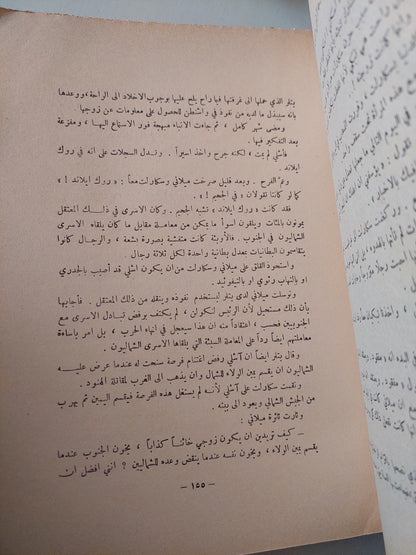 بتلر الذي حملها الى غرفتها فيها راح يلح عليها بوجوب الاخلاد الى الراحة، ووعدها
بانه سيبذل ما لديه من نفوذ في واشنطن للحصول على معلومات عن زوجها .
ومضى شهر كامل ، ثم جاءت الانباء مبهجة فور الاستماع اليها ، ومفزعة
بعد التفكير فيها .
فآشلي لم يمت ، لكنه جرح واخذ اسيراً . وتدل السجلات على انه في روك
ايلاند .
وعمّ الفرح . وبعد قليل صرخت ميلاني وسكارلت معاً : « روك ايلاند ! »
كما لو كانتا تقولان : « في الجحيم ! » .
فقد كانت « روك ايلاند » تشبه الجحيم . وكان الاسرى في ذلك المعتقل
يموتون بالمئات ويلقون اسوأ ما يمكن من معاملة مقابل ما كان يلقاه الاسرى
الشماليون في الجنوب . فالأوبئة كانت متفشية بصورة بشعة ، والرجال كانوا
يتقاسمون البطانيات بمعدل بطانية واحدة لكل ثلاثة رجال .
واستحوذ القلق على ميلاني وسكارلت من ان يكون اشلي قد أصيب بالجدري
او بالتهاب رئوي او بالتيفوئيد .
وتوسلت ميلاني لدى بتلر ليستخدم نفوذه وينقذ من ذلك المعتقل . فأجابها
بأن ذلك مستحيل لأن الرئيس لنكولن ، لم يكتف برفض تبادل الاسرى مع
الجنوبيين فحسب ، اعتقاداً منه ان هذا سيعجل في انهاء الحرب ، بل امر باساءة
معاملتهم ايضاً رداً على المعاملة السيئة التي يلقاها الاسرى الشماليون .
وقال بتلر ايضاً ان آشلي رفض اغتنام فرصة سنحت له عندما عرض عليه
الشماليون ان يقسم يمين الولاء للشمال وان يذهب الى الغرب لمقاتلة الهنود .
ونقمت سكارلت على آشلي لأنه لم يستغل هذه الفرصة فيقسم اليمين ثم يهرب
من الجيش الشمالي ويعود الى بيته .
وثارت ثائرة ميلاني :
– كيف تريدين ان يكون زوجي خائناً كذاباً ، يخون الجنوب عندما
يقسم يمين الولاء ، ويخون نفسه عندما ينقض وعده للشماليين ؟ انني افضل ان
– ١٥٥ –